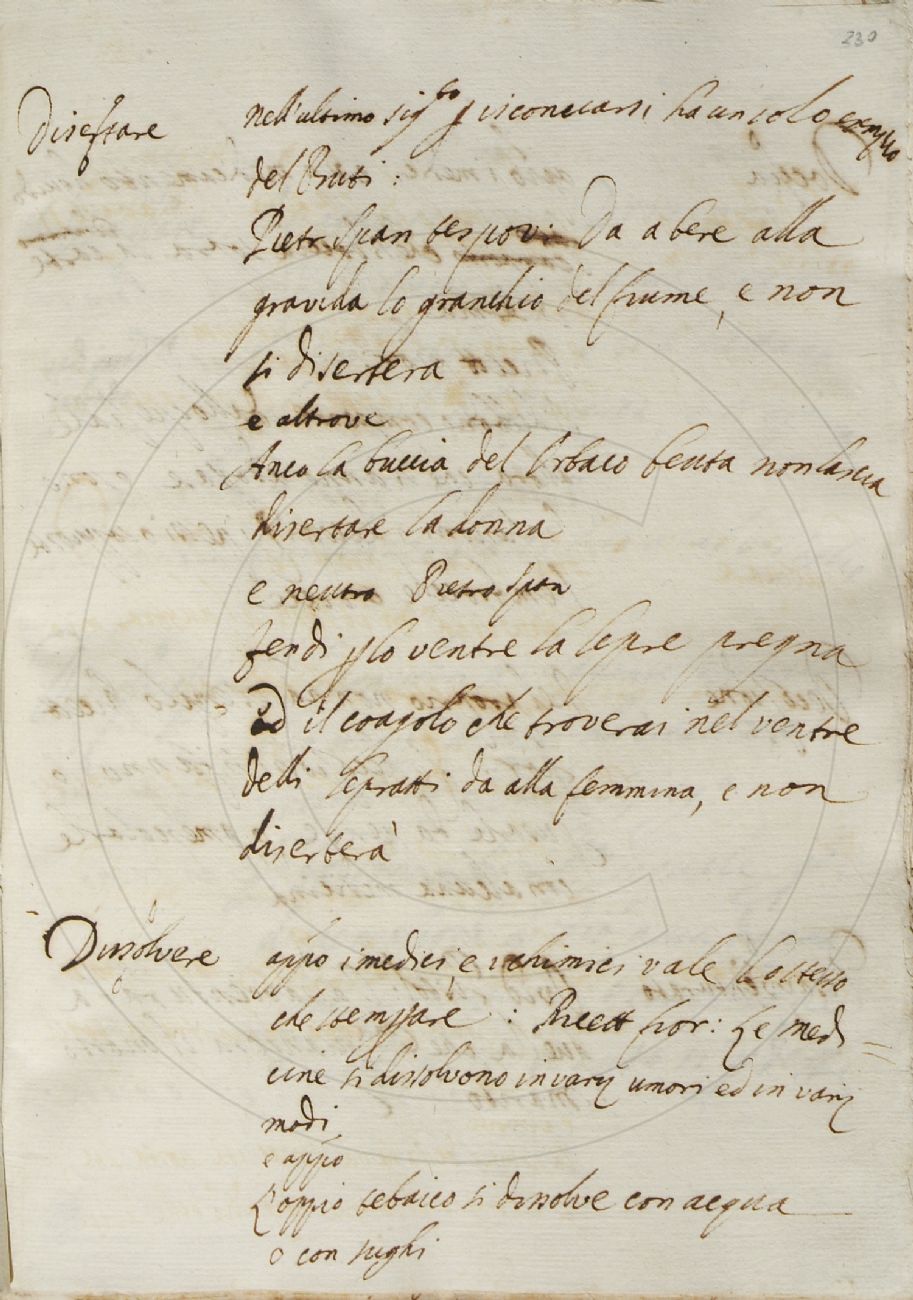 230
Disertare nell'ultimo sig.to p isconciarsi ha un solo exemplo
del Buti :
Pietr Span tes pov: Da a bere alla
gravida lo granchio del fiume, e non
si diserterà
e altrove
Anco la buccia del orbaco beuta non lascia
disertare la donna
e neutro Pietro Span
fendi p lo ventre la lepre pregna
ed il coagolo che troverai nel ventre
delli lepratti da alla femmina, e non
diserterà
Dissolvere appo i medici, e chimici vale lo stesso
che stemprare : Ricett fior: Le medi=
cine si dissolvono in varij umori ed in varij
modi
e appo
L'oppio tebaico si dissolve con acqua
o con sughi